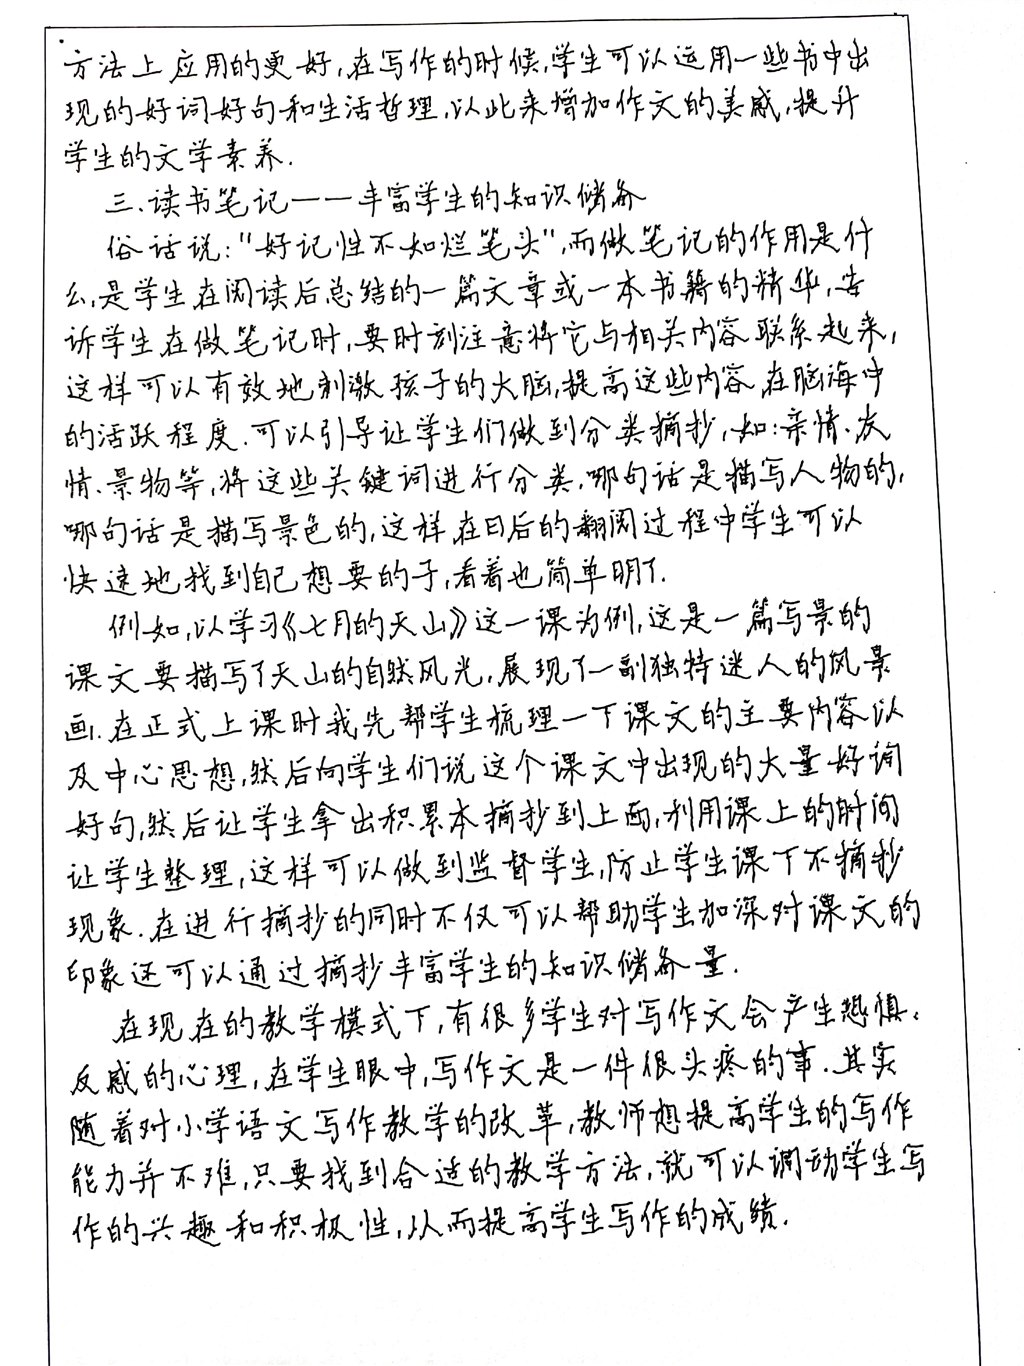 方法上应用的更好,在写作的时候,学生可以运用一些书中出
现的好词好句和生活哲理,以此来增加作文的美感,提升
学生的文学素养.
三.读书笔记——丰富学生的知识储备
俗话说:"好记性不如烂笔头",而做笔记的作用是什
么,是学生在阅读后总结的一篇文章或一本书籍的精华,告
诉学生在做笔记时,要时刻注意将它与相关内容联系起来,
这样可以有效地刺激孩子的大脑,提高这些内容在脑海中
的活跃程度.可以引导让学生们做到分类摘抄,如:亲情、友
情、景物等,将这些关键词进行分类,哪句话是描写人物的,
哪句话是描写景色的,这样在日后的翻阅过程中学生可以
快速地找到自己想要的子,看着也简单明了.
例如,以学习《七月的天山》这一课为例,这是一篇写景的
课文要描写了天山的自然风光,展现了一副独特迷人的风景
画.在正式上课时我先帮学生梳理一下课文的主要内容以
及中心思想,然后向学生们说这个课文中出现的大量好词
好句,然后让学生拿出积累本摘抄到上面,利用课上的时间
让学生整理,这样可以做到监督学生,防止学生课下不摘抄
现象.在进行摘抄的同时不仅可以帮助学生加深对课文的
印象还可以通过摘抄丰富学生的知识储备量.
在现在的教学模式下,有很多学生对写作文会产生恐惧、
反感的心理,在学生眼中,写作文是一件很头疼的事.其实
随着对小学语文写作教学的改革,教师想提高学生的写作
能力并不难,只要找到合适的教学方法,就可以调动学生写
作的兴趣和积极性,从而提高学生写作的成绩.